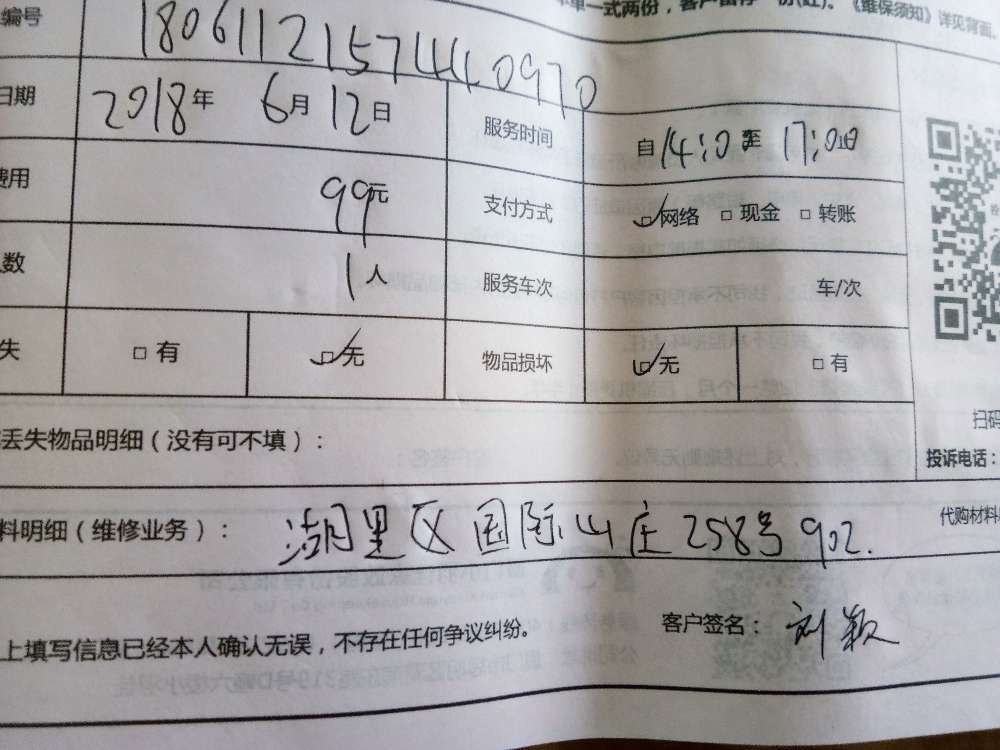 单一式两份，客户留存一份(红)。《维保须知》详见背面。
编号 1806112157440970
日期 2018年 6月12日 服务时间 自14:00至17:00止
费用 99元 支付方式 网络 □ 现金 □ 转账
数 1人 服务车次 车/次
失 □ 有 □ 无 物品损坏 □ 无 □ 有
丢失物品明细（没有可不填）：
扫码
投诉电话：
料明细（维修业务）： 湖里区国际山庄258号902.
代购材料
上填写信息已经本人确认无误，不存在任何争议纠纷。
客户签名： 刘颖